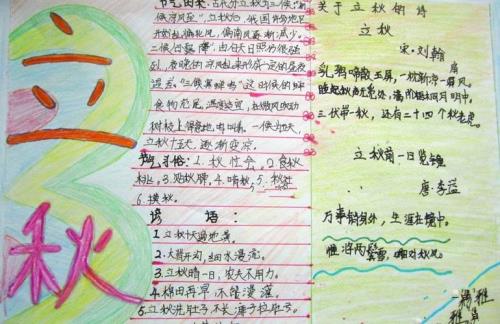 立
秋
节气由来:古代分立秋为三候:"初
候凉风至",立秋后,我国许多地区
开始刮偏北风,偏南风逐渐减少。
二候白露降,由白天日照仍很强
烈,夜晚的凉风刮来形成一定的昼夜
温差。"三候寒蝉鸣"这时候的蝉
食物充足,温度适宜,在微风吹动
树枝上得意地鸣叫着。
立秋十五天,逐渐变凉。
节气习俗:1.秋社会,2.食秋
桃,3.贴秋膘,4.啃秋,5.秋社
6.摸秋。
谚语:
1.立秋十天遍地黄。
2.大暑开初,细水漫流。
3.立秋晴一日,农夫不用力。
4.棉田再旱,不能漫灌。
5.立秋洗肚子,不长痱子拉肚子。
关于立秋的诗
立秋
宋·刘翰
乳鸦啼散玉屏,一枕新凉一扇风。
睡起秋声无觅处,满阶梧桐月明中。
三伏带一秋,还有二十四个秋老虎
立秋前一日览镜
唐·李益
万事销身外,生涯在镜中。
惟将两鬓雪,明日对秋风。